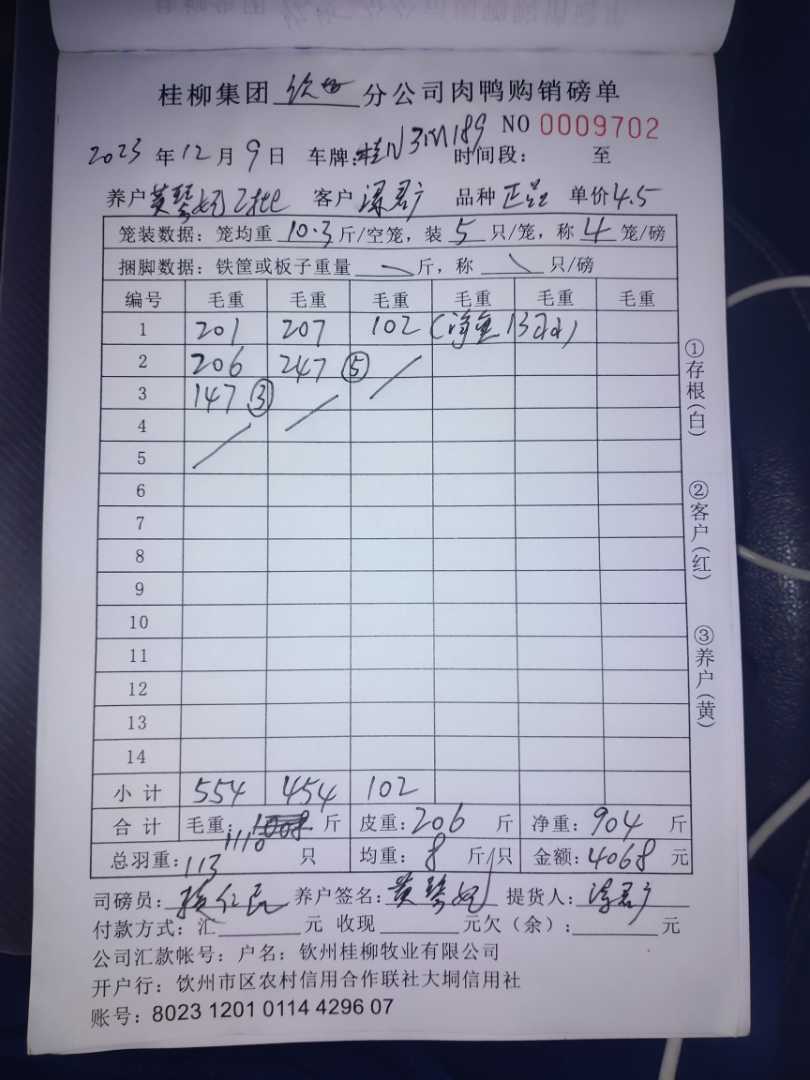 桂柳集团 钦州 分公司肉鸭购销磅单
NO 0009702
2023 年 12 月 9 日 车牌:桂N3M189 时间段: 至
养户 黄琴 客户 品种 正品 单价 4.5
笼装数据: 笼均重 10.3 斤/空笼, 装 5 只/笼, 称 4 笼/磅
捆脚数据: 铁筐或板子重量 斤, 称 只/磅
编号 毛重 毛重 毛重 毛重 毛重 毛重
1 201 207 102 (净重13只)
2 206 247 ⑤
3 147 ③
4
5
6
7
8
9
10
11
12
13
14
小计 554 454 102
合计 毛重: 1110 斤 皮重: 206 斤 净重: 904 斤
总羽重: 113 只 均重: 8 斤/只 金额: 4068 元
司磅员: 养户签名: 黄琴 提货人:
付款方式: 汇 元 收现 元欠(余): 元
公司汇款帐号: 户名: 钦州桂柳牧业有限公司
开户行: 饮州市区农村信用合作联社大垌信用社
账号: 8023 1201 0114 4296 07
①存根(白)
②客户(红)
③养户(黄)